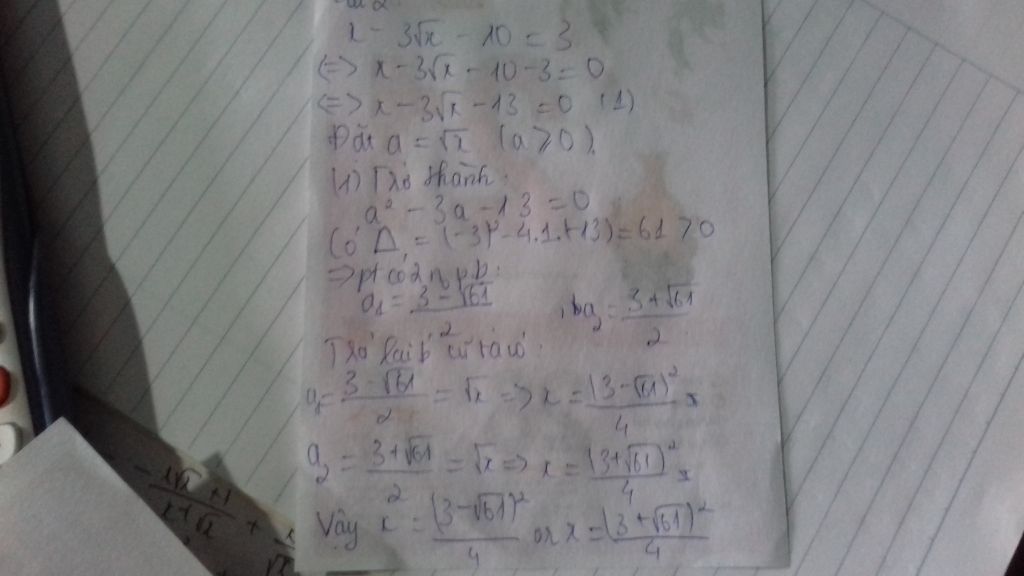 x - 3√x - 10 = 3
<=> x - 3√x - 10 - 3 = 0
<=> x - 3√x - 13 = 0 (1)
Đặt a = √x (a ≥ 0)
(1) Trở thành:
a² - 3a - 13 = 0
Có Δ = (-3)² - 4.1.(-13) = 61 > 0
=> pt có 2 n₀ p.b:
a₁ = (3 - √61)/2 a₂ = (3 + √61)/2
Trở lại
a₁ = (3 - √61)/2 = √x => x = (3 - √61)²/4
a₂ = (3 + √61)/2 = √x => x = (3 + √61)²/4
Vậy x = (3 - √61)²/4 or x = (3 + √61)²/4